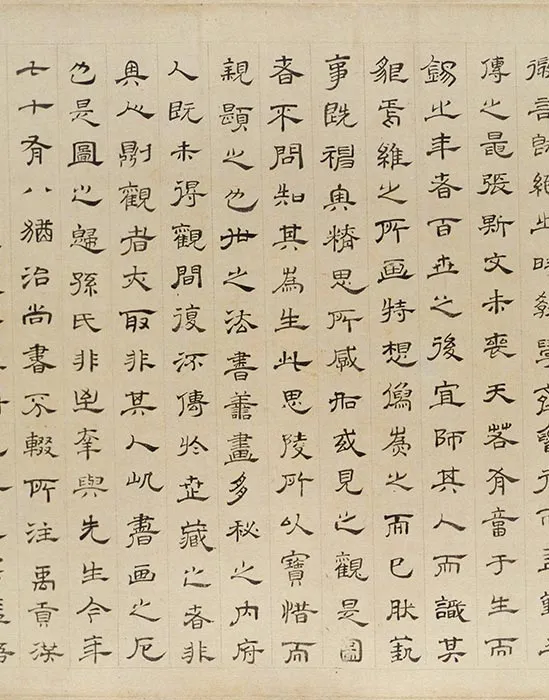 微言旣絕之時教學齊魯
傳之最張斯文未喪天若有意于生而
錫之年者百世之後宜師其人而識其
貌焉維之所画特想像為之而已然藝
事旣神與精思所感如或見之觀是圖
者不問知其為生此思陵所以寶惜而
親題之也世之法書善畫多秘之內府
人旣未得觀間復流傳於世藏之者非
具心尠觀者亦取非其人書画之厄
也是圖之歸孫氏非幸與先生今年
七十有八猶治尚書不輟所注禹貢洪